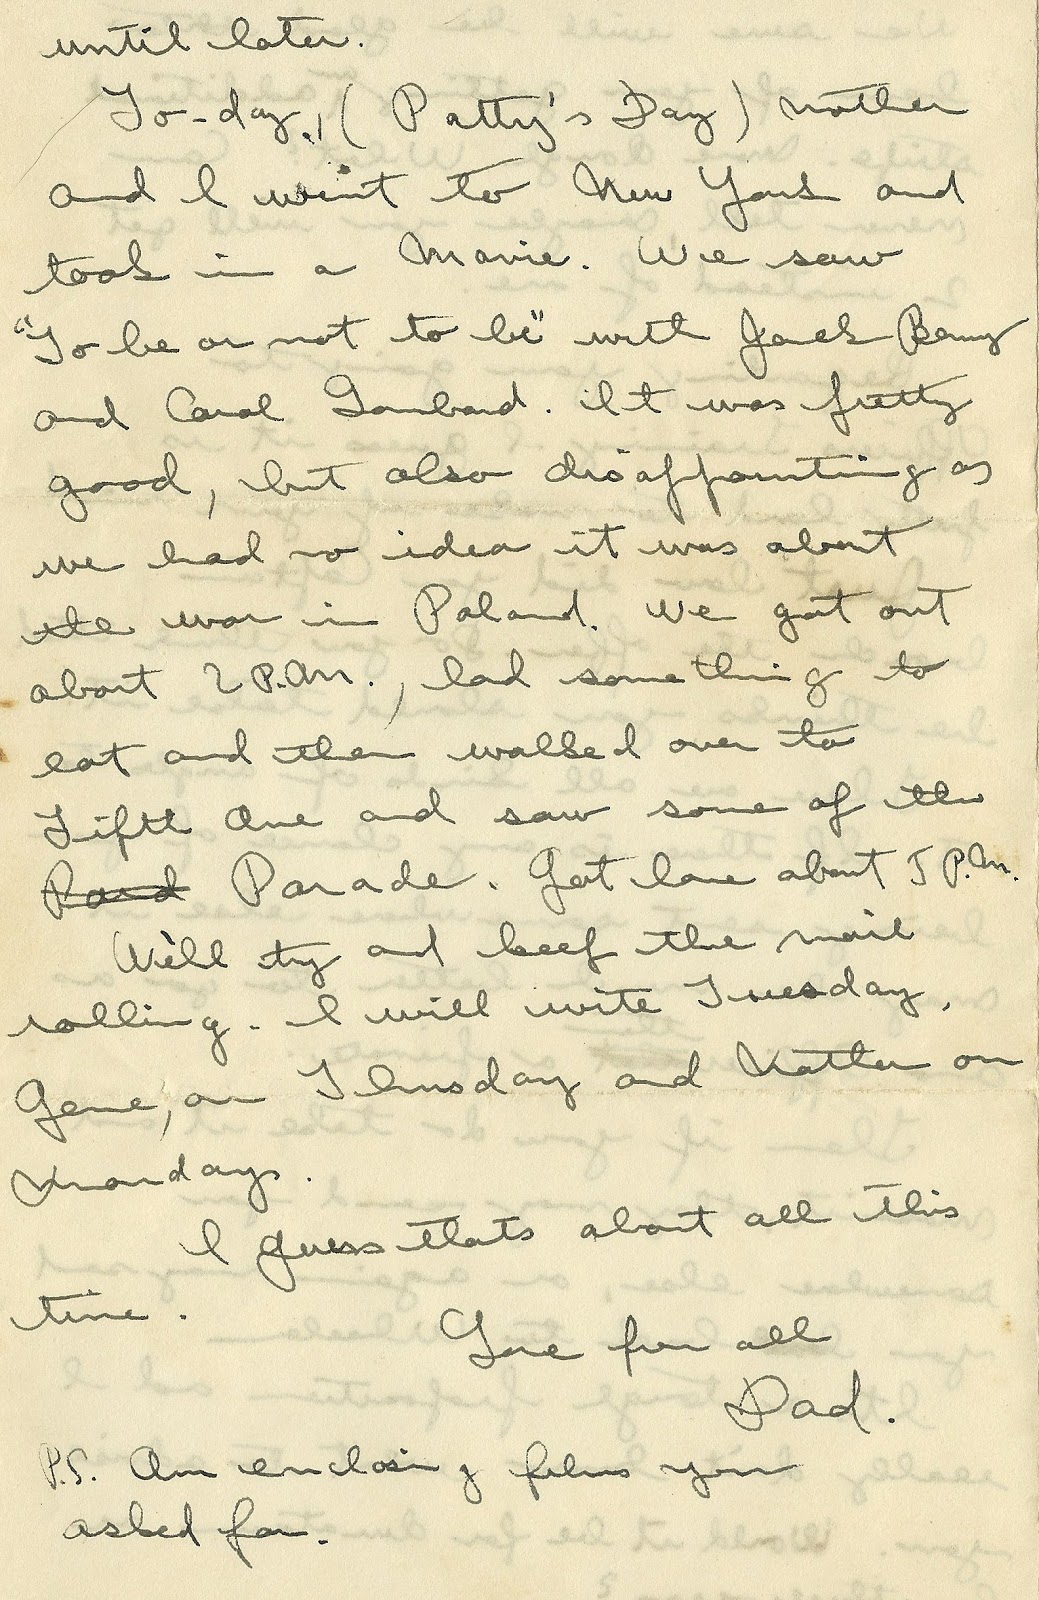 until later.
To-day, (Patty's Day) mother
and I went to New York and
took in a Movie. We saw
"To be or not to be" with Jack Benny
and Carol Lombard. It was pretty
good, but also disappointing as
we had no idea it was about
the war in Poland. We got out
about 2 P.M., had something to
eat and then walked over to
Fifth Ave and saw some of the
Parade. Got home about 5 P.M.
We'll try and keep the mail
rolling. I will write Tuesday,
Gene, on Thursday and Mother on
Mondays.
I guess thats about all this
time.
Love from all
Dad.
P.S. Am enclosing films you
asked for.